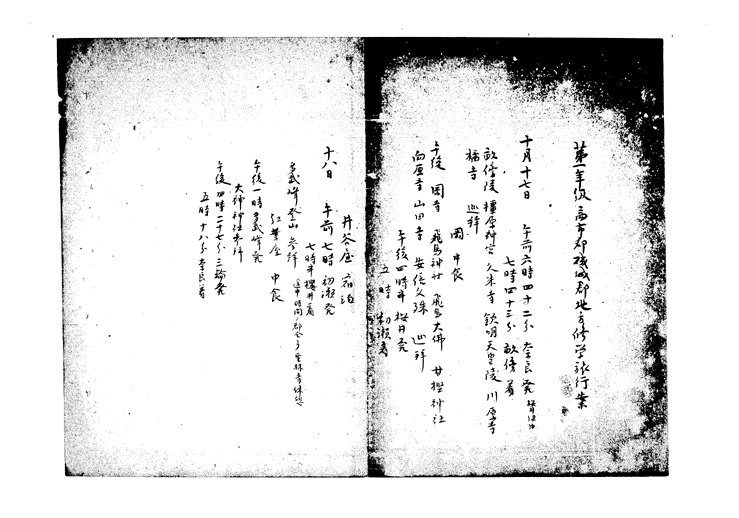 第一年級高市郡磯城郡地方修学旅行案
十月十七日 午前六時四十二分 奈良発
七時四十三分 畝傍着
畝傍陵 橿原神宮 久米寺 欽明天皇陵 川原寺
橘寺 巡拝
岡 中食
午後 岡寺 飛鳥神社 飛鳥大佛 甘樫神社
向原寺 山田寺 安倍文殊 巡拝
午後四時半 桜井発
五時 初瀬着
井谷屋 宿泊
十八日 午前七時 初瀬発
七時半 櫻井着
多武峰登山 参拝
紅葉屋 中食
午後一時多武峰発
大神神社参拝
午後四時二十七分三輪発
五時十八分奈良着